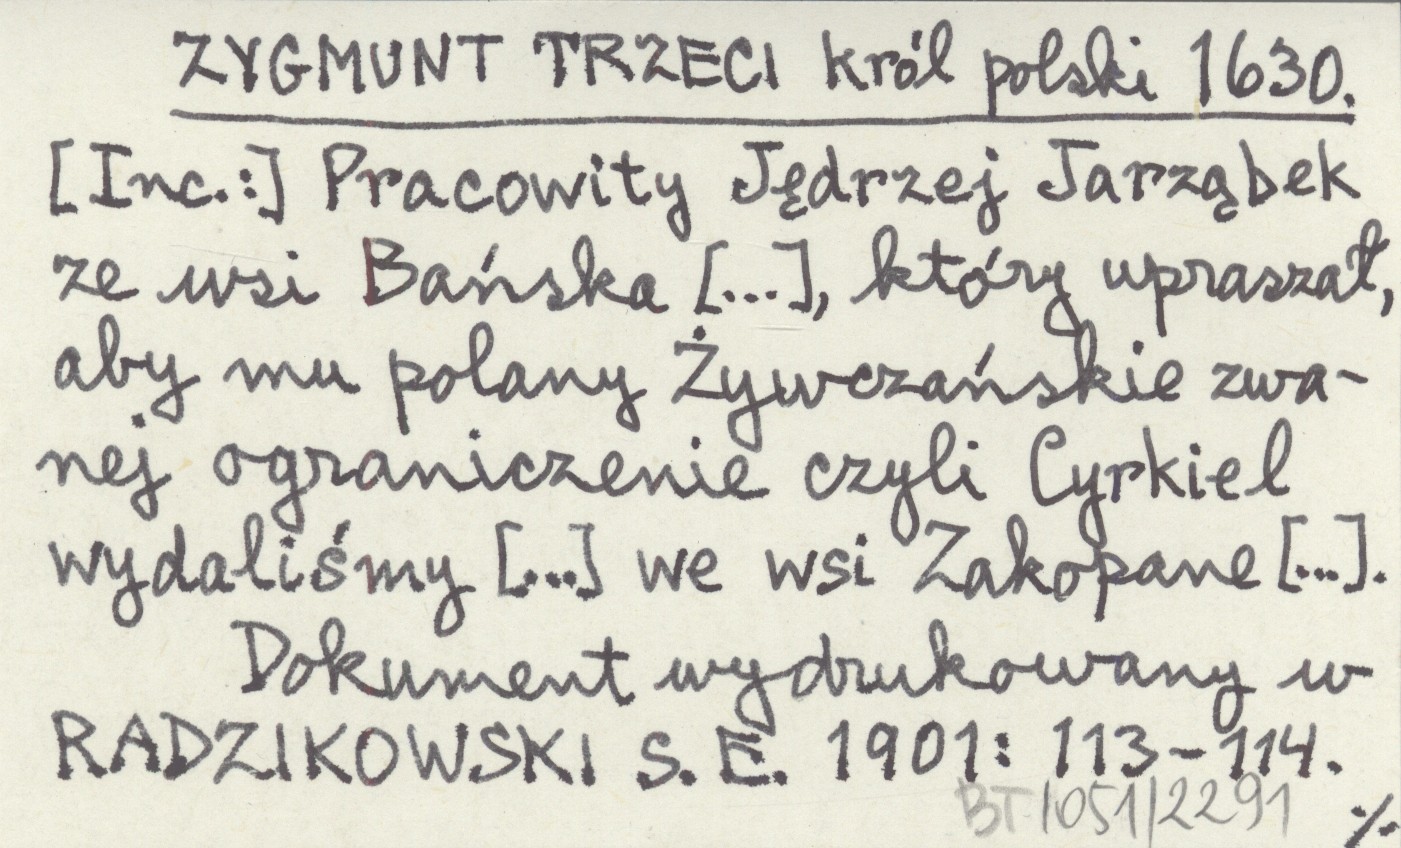 ZYGMUNT TRZECI król polski 1630.
[Inc.:] Pracowity Jędrzej Jarząbek
ze wsi Bańska [...], który upraszał,
aby mu polany Żywczańskie zwa-
nej ograniczenie czyli Cyrkiel
wydaliśmy [...] we wsi Zakopane [...].
Dokument wydrukowany w
RADZIKOWSKI S. E. 1901: 113-114.
BT/051/2291
./.